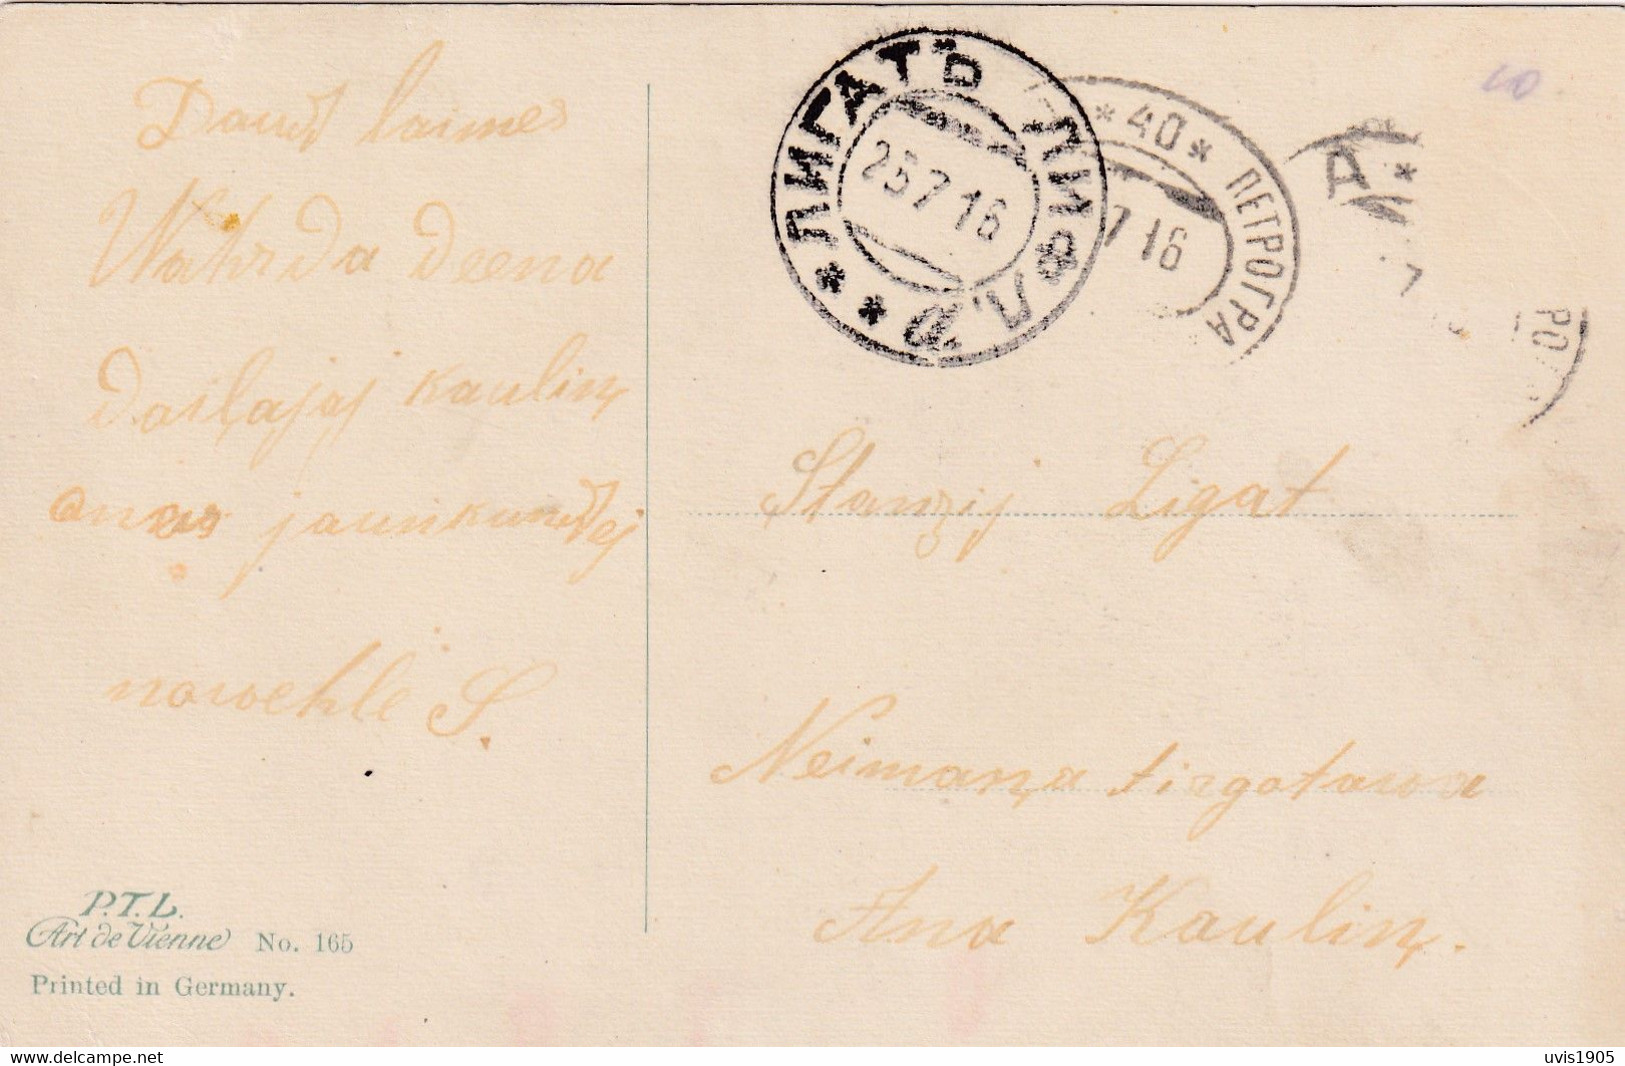 Daudſ laimes
Wahrda deena
Daiļajaj Kauliņ
jaunkundſej
nowehle S.
P.T.L.
Art de Vienne No. 165
Printed in Germany.
ЛИГАТЪ ЛИФЛ.
25 7 16
* 40 * ПЕТРОГРА
7 16
Р *
7
РО
Stanzij Ligat
Neimaņa tirgotawa
Ana Kauliņ.
delcampe.net
uvis1905